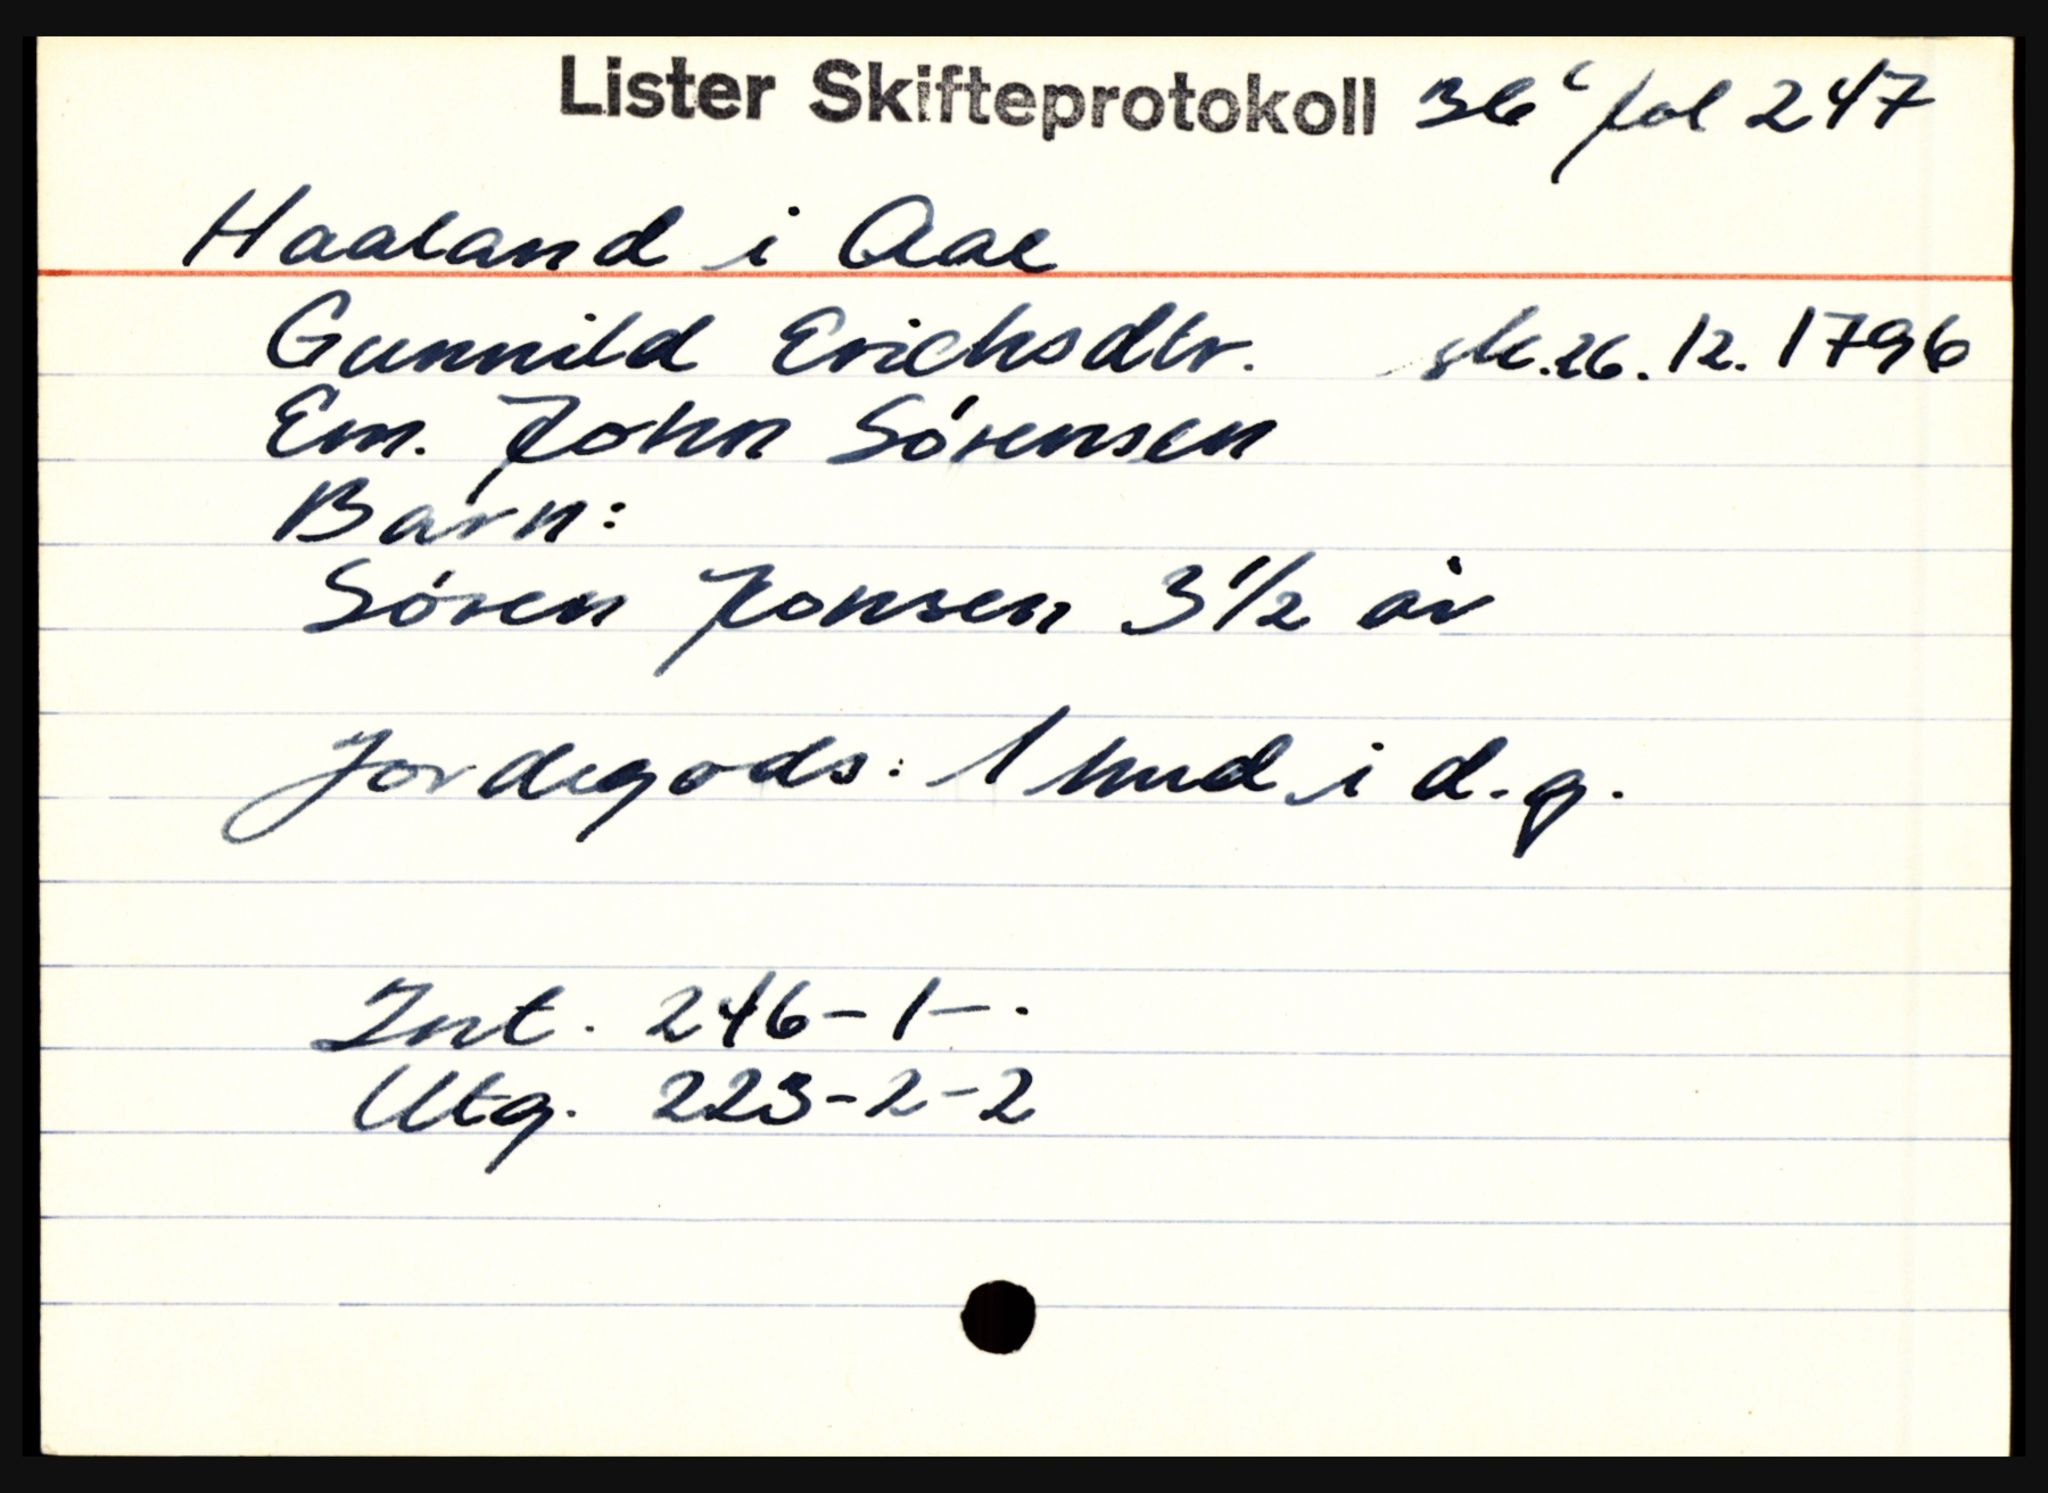 Lister Skifteprotokoll 36c fol 247
Haaland i Aae
Gunnild Erichsdtr. sk. 26. 12. 1796
Em. John Sórensen
Barn:
Sóren Jonsen 3 1/2 år
Jordegods: 1 hud i d. g.
Int. 246-1-.
Utg. 223-2-2